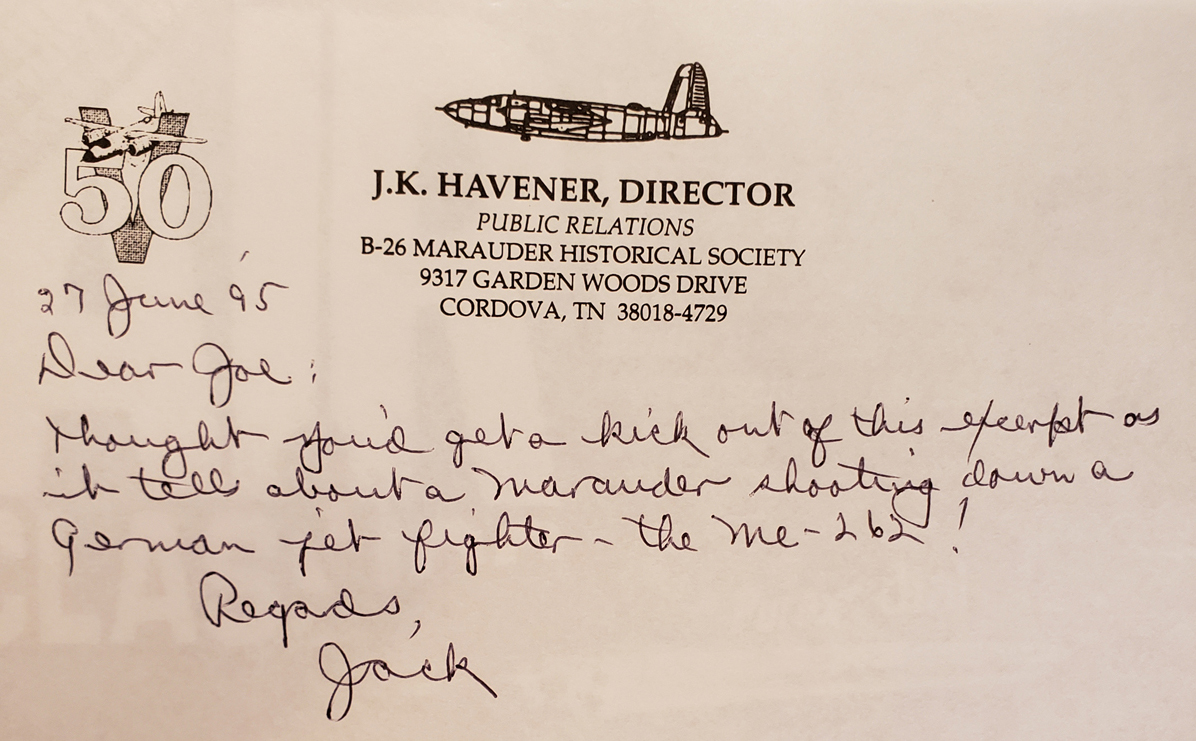 V
50
J.K. HAVENER, DIRECTOR
PUBLIC RELATIONS
B-26 MARAUDER HISTORICAL SOCIETY
9317 GARDEN WOODS DRIVE
CORDOVA, TN 38018-4729
27 June '95
Dear Joe:
Thought you'd get a kick out of this excerpt as
it tells about a Marauder shooting down a
German jet fighter - the Me-262!
Regards,
Jack